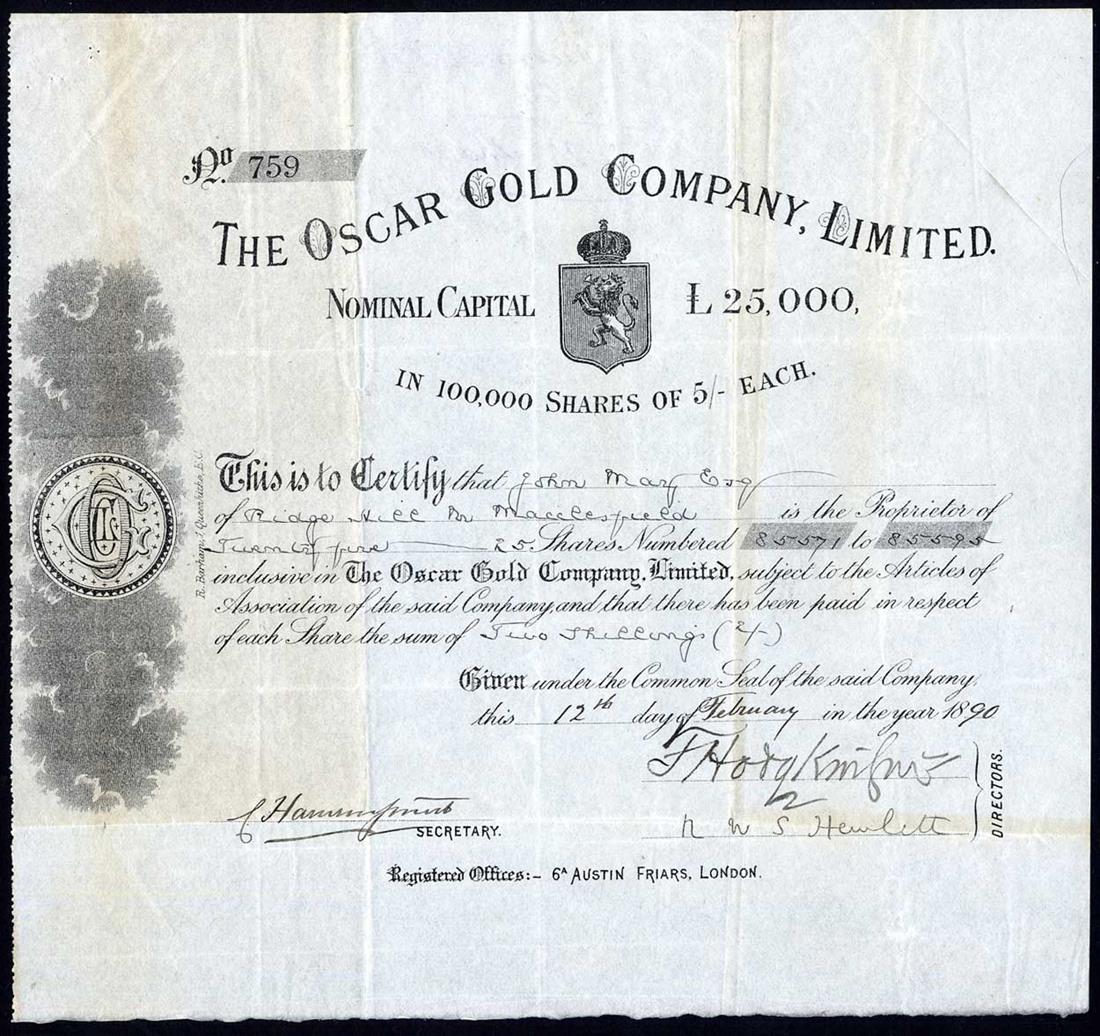 No. 759
THE OSCAR GOLD COMPANY, LIMITED.
NOMINAL CAPITAL £25,000,
IN 100,000 SHARES OF 5/- EACH.
This is to Certify that John May Esq
of Ridge Hill Nr Macclesfield is the Proprietor of
Twenty five 25. Shares Numbered 85571 to 85595
inclusive in The Oscar Gold Company, Limited, subject to the Articles of
Association of the said Company, and that there has been paid in respect
of each Share the sum of Two Shillings (2/-)
Given under the Common Seal of the said Company,
this 12th day of February in the year 1890
F Hodg
N W S Hewlett
DIRECTORS.
SECRETARY.
Registered Offices:- 6A AUSTIN FRIARS, LONDON.
R. Barham, 1, Queenhithe, E.C.